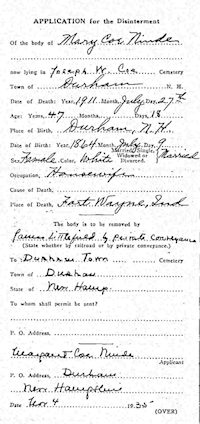 APPLICATION for the Disinterment
Of the body of Mary Coe Ninde
now lying in Joseph W. Coe Cemetery
Town of Durham N. H.
Date of Death: Year, 1911 Month, July Day, 27th
Age: Years, 47 Months, Days, 18
Place of Birth, Durham, N. H.
Date of Birth: Year, 1864 Month, July Day, 9
Sex Female Color, White Married, Single, Widowed or Divorced, Married
Occupation, Housewife
Cause of Death,
Place of Death, Fort Wayne, Ind
The body is to be removed by
James Littlefield by private conveyance
(State whether by railroad or by private conveyance.)
To Durham Town Cemetery
Town of Durham
State of New Hamp.
To whom shall permit be sent?
P. O. Address,
Margaret Coe Ninde
Applicant
P. O. Address, Durham
New Hampshire
Date Nov 4 1935
(OVER)